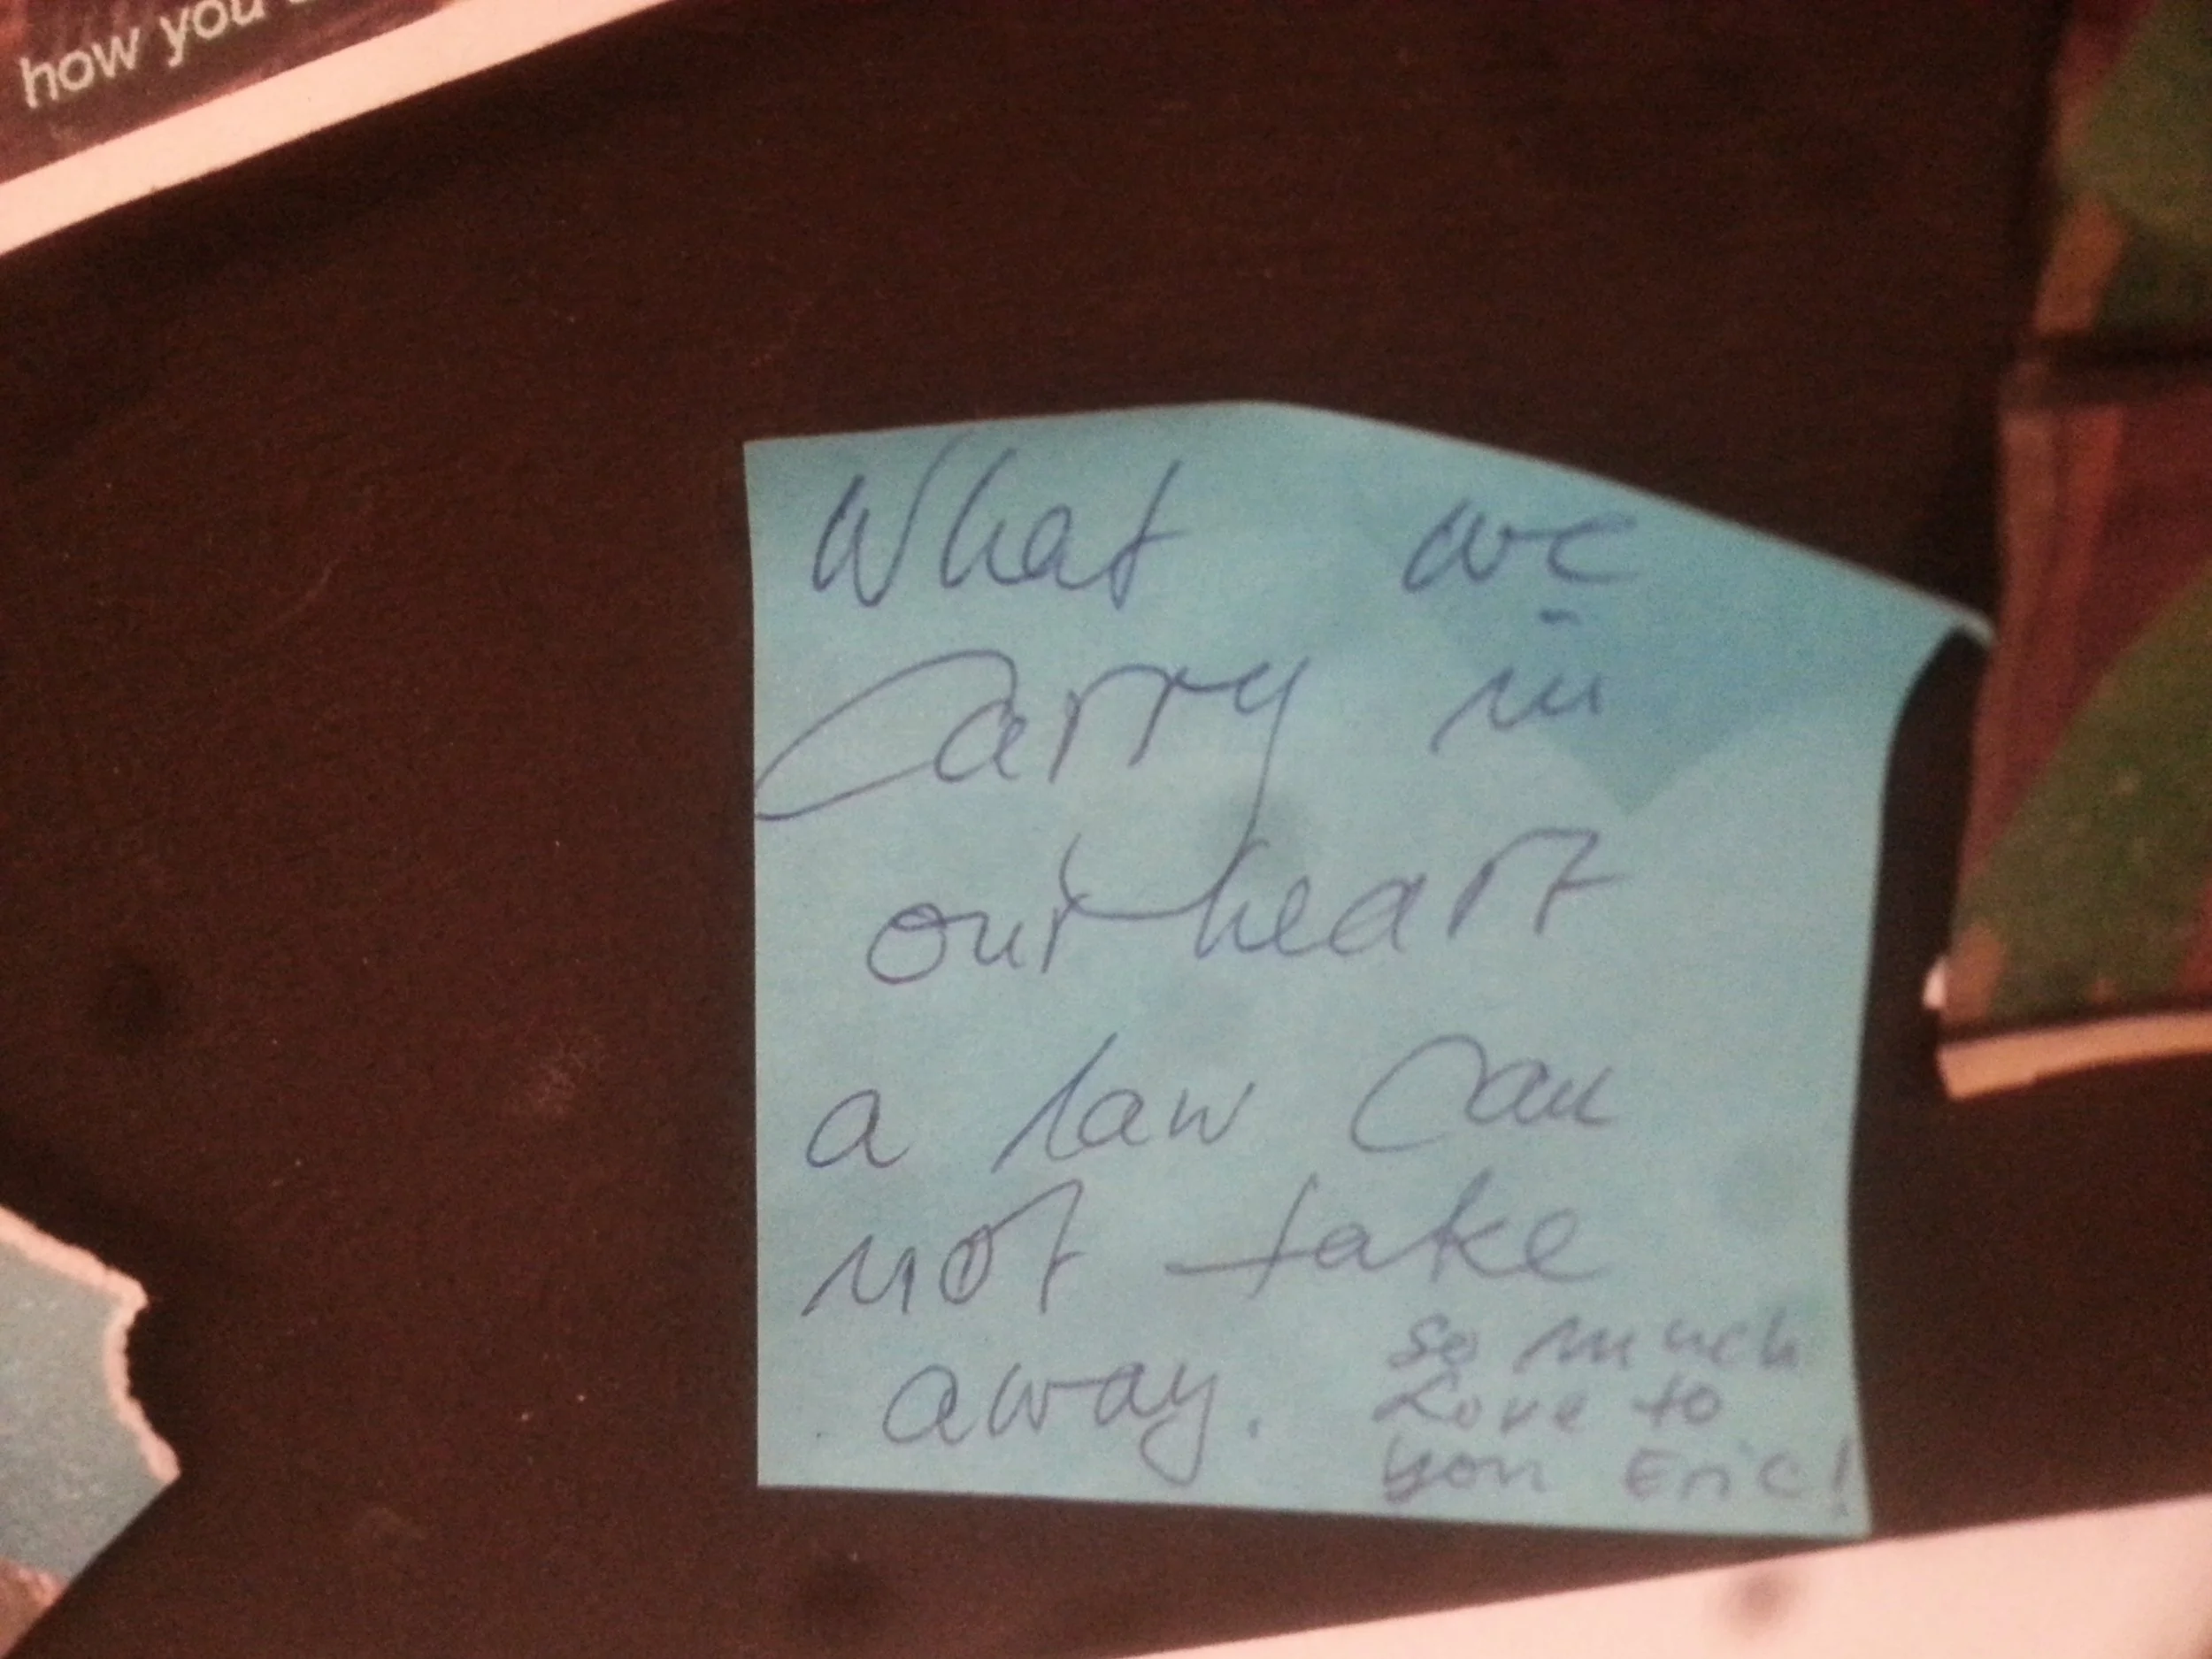 how you
What we
carry in
our heart
a law can
not take
away.
so much
Love to
you Eric!